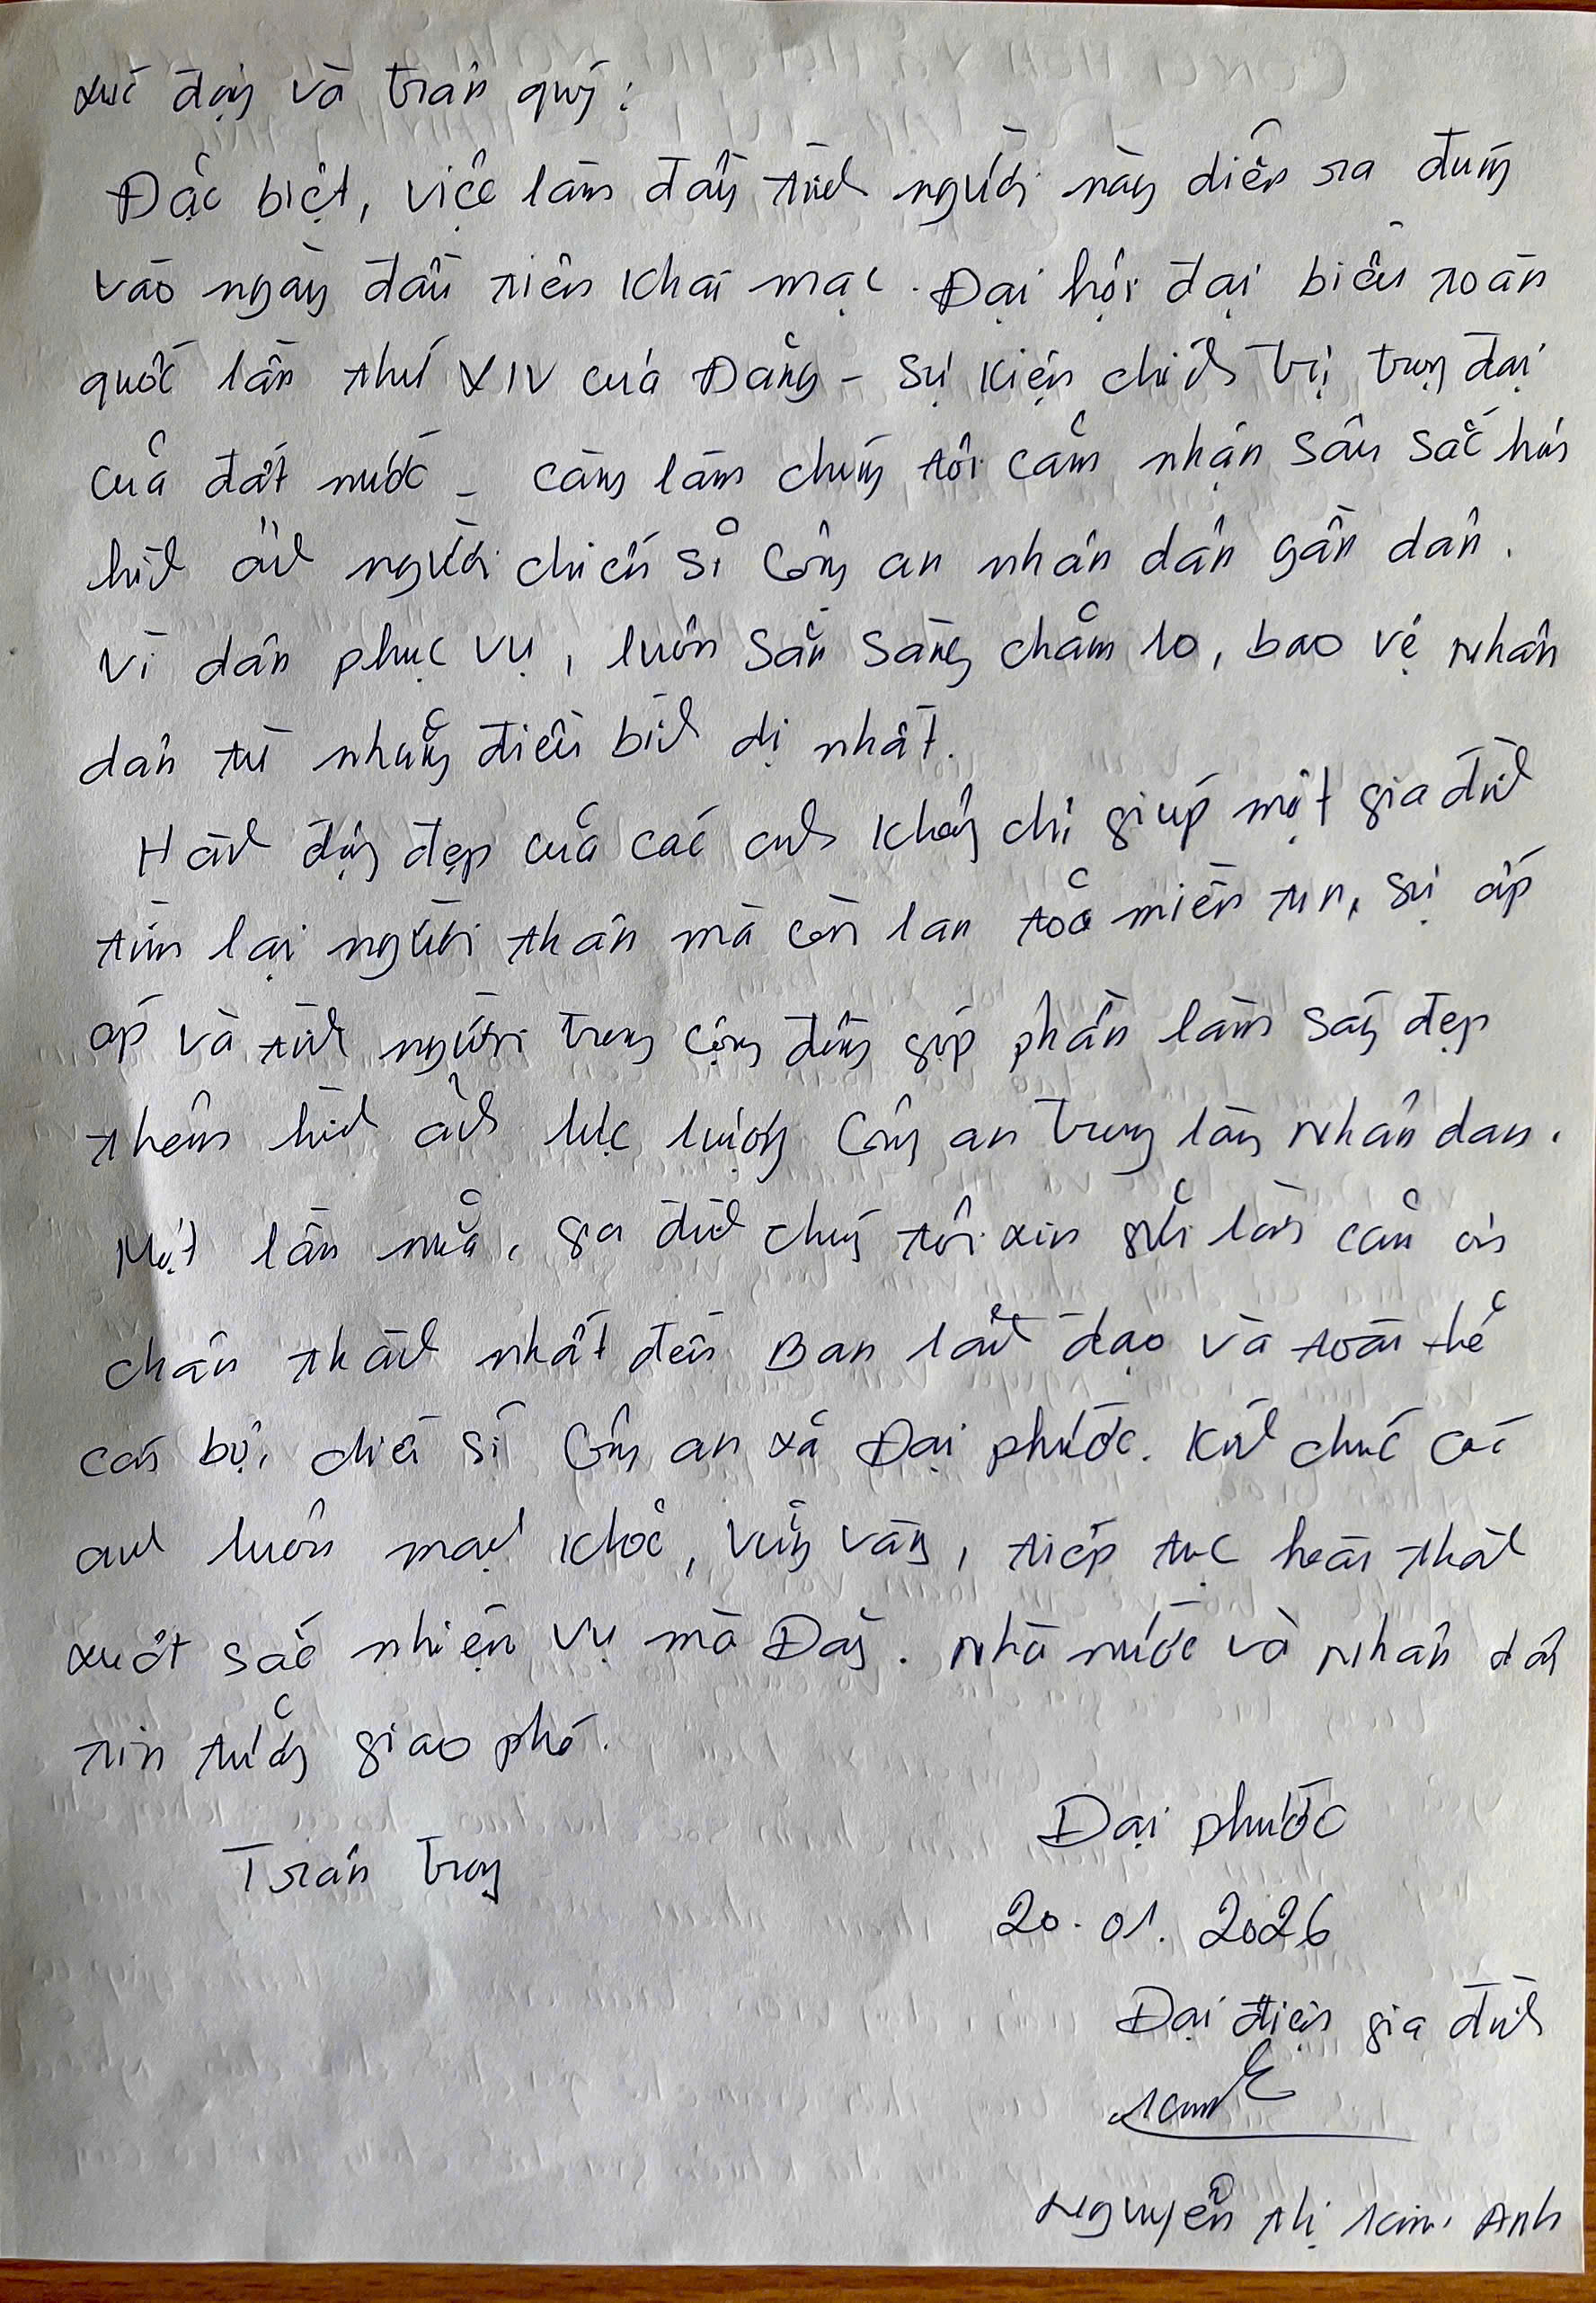 xúc động và trân quý.
Đặc biệt, việc làm đầy tình người này diễn ra đúng
vào ngày đầu tiên khai mạc Đại hội đại biểu toàn
quốc lần thứ XIV của Đảng - sự kiện chính trị trọng đại
của đất nước - càng làm chúng tôi cảm nhận sâu sắc hơn
hình ảnh người chiến sĩ Công an nhân dân gần dân,
vì dân phục vụ, luôn sẵn sàng chăm lo, bảo vệ Nhân
dân từ những điều bình dị nhất.
Hành động đẹp của các anh không chỉ giúp một gia đình
tìm lại người thân mà còn lan toả niềm tin, sự ấm
áp và tình người trong cộng đồng góp phần làm sáng đẹp
thêm hình ảnh lực lượng Công an trong lòng Nhân dân.
Một lần nữa, gia đình chúng tôi xin gửi lời cảm ơn
chân thành nhất đến Ban lãnh đạo và toàn thể
cán bộ, chiến sĩ Công an xã Đại Phước. Kính chúc các
anh luôn mạnh khoẻ, vững vàng, tiếp tục hoàn thành
xuất sắc nhiệm vụ mà Đảng, Nhà nước và Nhân dân
tin tưởng giao phó.
Trân trọng
Đại Phước
20.01.2026
Đại diện gia đình
Nguyễn Thị Kim Anh